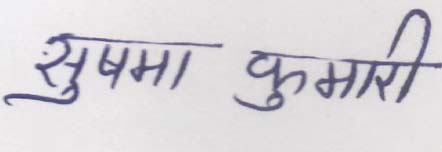 सुषमा कुमारी